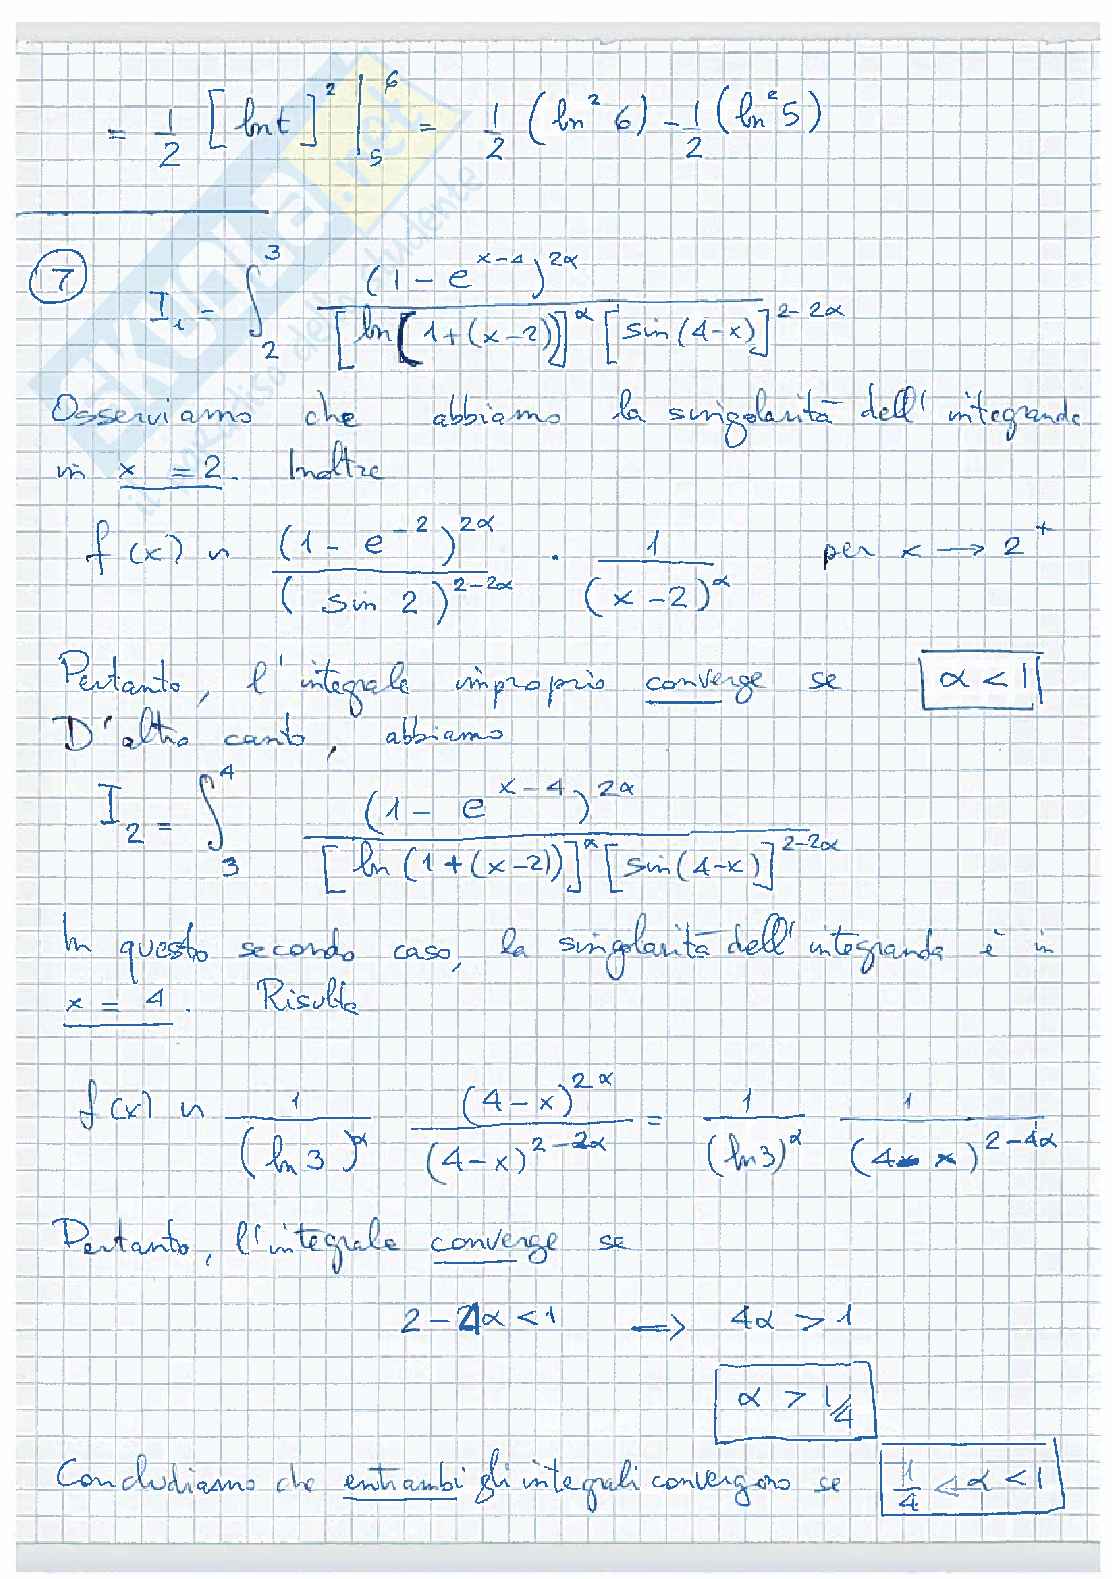 = 1/2 [ln t]² |₅⁶ = 1/2 (ln² 6) - 1/2 (ln² 5)
7
I₁ = ∫₂³ (1 - e^(x-4))^(2α) / [ln(1+(x-2))]^α [sin(4-x)]^(2-2α)
Osserviamo che abbiamo la singolarità dell'integranda
in x = 2. Inoltre
f(x) ~ (1 - e^(-2))^(2α) / (sin 2)^(2-2α) · 1 / (x-2)^α per x → 2⁺
Pertanto, l'integrale improprio converge se α < 1
D'altro canto, abbiamo
I₂ = ∫₃⁴ (1 - e^(x-4))^(2α) / [ln(1+(x-2))]^α [sin(4-x)]^(2-2α)
In questo secondo caso, la singolarità dell'integranda è in
x = 4. Risulta
f(x) ~ 1 / (ln 3)^α (4-x)^(2α) / (4-x)^(2-2α) = 1 / (ln 3)^α 1 / (4-x)^(2-4α)
Pertanto, l'integrale converge se
2 - 4α < 1 ⇒ 4α > 1
α > 1/4
Concludiamo che entrambi gli integrali convergono se 1/4 < α < 1
SKUOLA.net
il paradiso dello studente